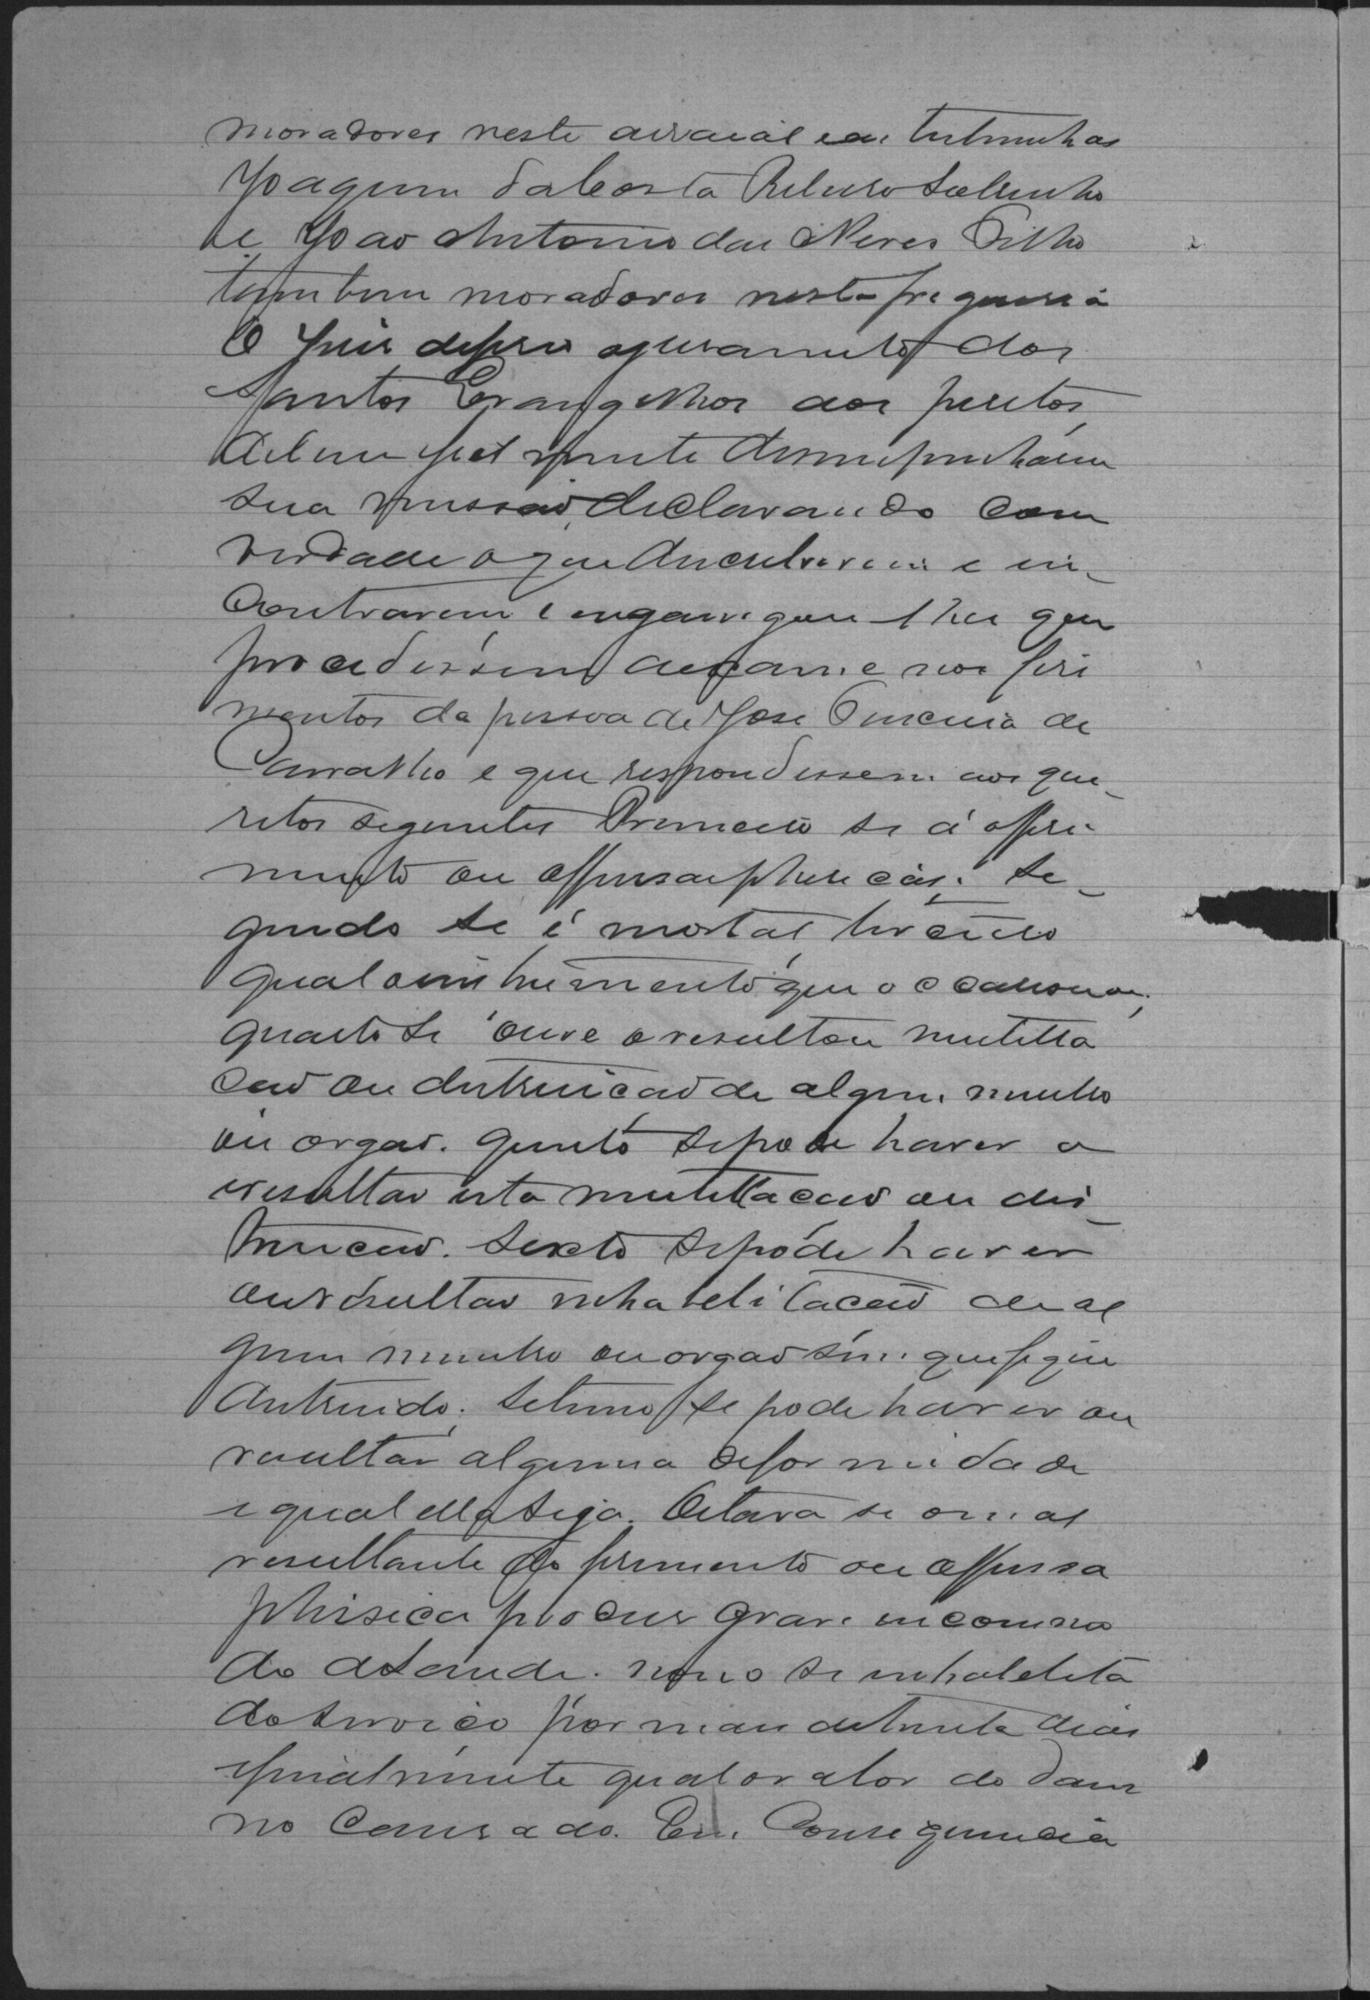 moradores neste arraial e as testemunhas
Joaquim da Costa Ribeiro Sobrinho
e João Antonio das Neves Filho
tambem moradores nesta freguesia
O Juis deferio o juramento dos
Santos Evangelhos aos peritos
de bem e fielmente desempenharem
sua missão, declarando com
verdade o que descubrirem e en-
contrarem e encarregou-lhes que
procedessem a exame nos feri
mentos da pessoa de José de
Carvalho e que respondessem aos que-
sitos seguintes Primeiro se á offeri
mento ou offensa phisicas; Se-
gundo se é mortal terceiro
qual o instrumento que o occasionou;
quarto se ouve o resultou mutilla
cão ou distruicão de algum membro
ou orgão. quinto se pode haver o
resultar esta mutillacão ou dis-
truicão. Sexto se póde haver
ou resultar inhabilitacão de al
gum membro ou orgão sem que fique
destruido; Setimo se pode haver ou
resultar alguma deformidade
e qual ella seja. Oitavo se o mal
resultante do ferimento ou offensa
phisica produs grave incommo
do de saude. nono se inhabilita
do servico por mais de trinta dias
finalmente qual o valor do dam
no causado. Em Consequencia